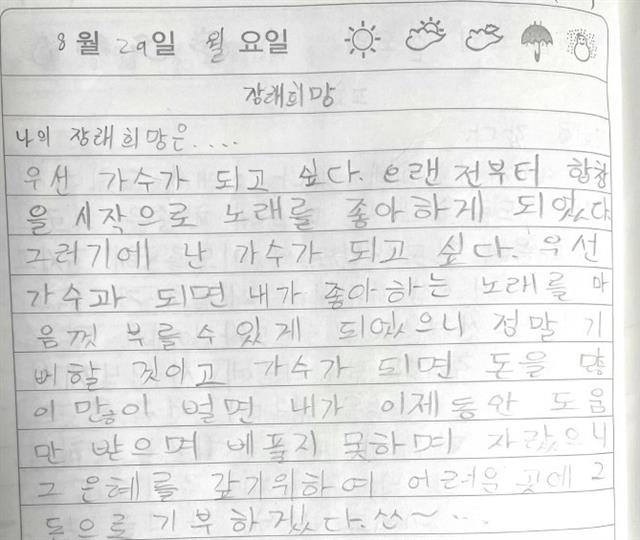 8월 29일 월요일
장래희망
나의 장래희망은.....
우선 가수가 되고 싶다. e랜 전부터 합창
을 시작으로 노래를 좋아하게 되었다
그러기에 난 가수가 되고 싶다. 우선
가수과 되면 내가 좋아하는 노래를 마
음껏 부를수 있게 되었으니 정말 기
뻐할 것이고 가수가 되면 돈을 많
이 많이 벌면 내가 이제동안 도움
만 받으며 베풀지 못하며 자랐으니
그 은혜를 갚기위하여 어려운 곳에 2
돈으로 기부하겠다. 쓰~...